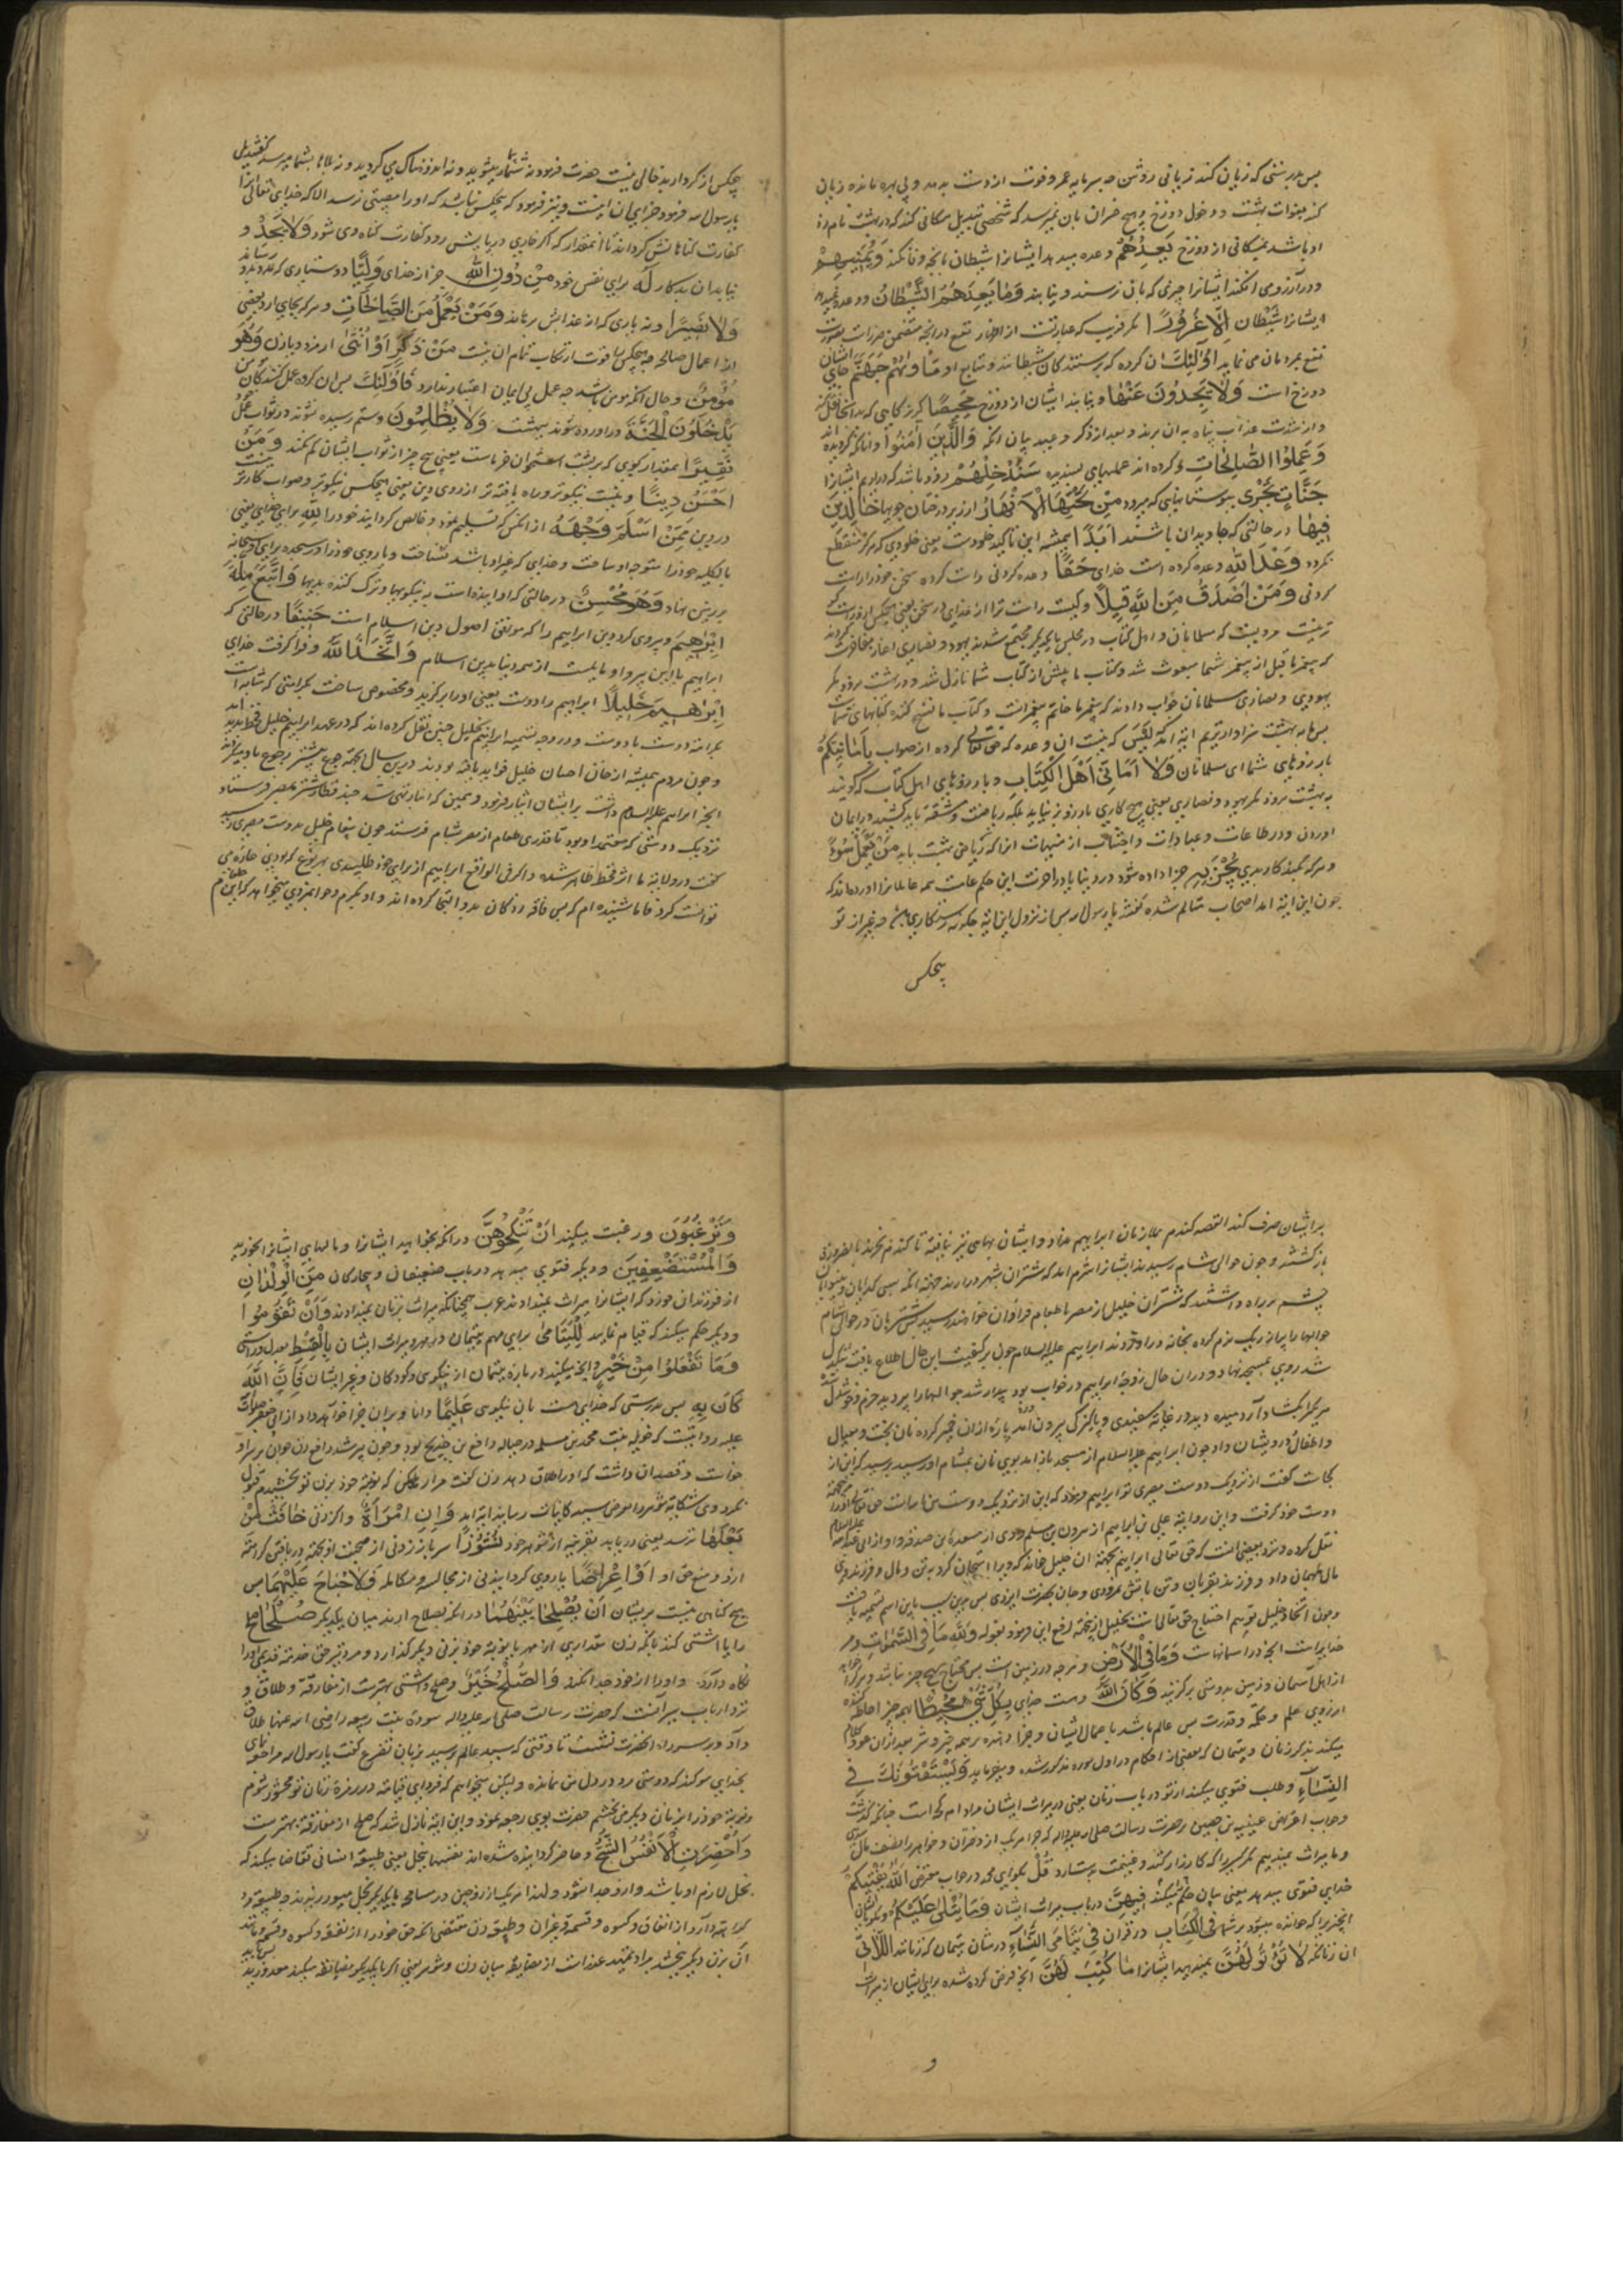 پس بدرستی که زیان کند زیانی روشن چه سرمایه عمر و فوت از دست بدهد و بی بهره مانده زیان
کند بفوات بهشت و دخول دوزخ و هیچ خسران بان نمیرسد که شخصی تبدیل مکانی کند که در بهشت نامزد
او باشد بمکانی از دوزخ یَعِدُهُمْ وعده میدهد ایشانرا شیطان بانچه وفا نکند وَیُمَنِّیهِمْ
و در آرزو می افکند ایشانرا چیزی که بان نرسند و نیابند وَمَا یَعِدُهُمُ الشَّیْطَانُ و وعده نمیدهد
ایشانرا شیطان اِلَّا غُرُورًا مگر فریب که عبارتست از اظهار نفع در آنچه متضمن ضررات
نفع بمردمان می نماید اُولٰئِكَ ان گروه که پرستندکان شیطانند و متابع او مَأْوٰیهُمْ جَهَنَّمُ جای ایشان
دوزخ است وَلَا یَجِدُونَ عَنْهَا و نیابند ایشان از دوزخ مَحِیصًا کریزکاهی که بدانجا
و از شدت عذاب پناه به ان برند و بعد از ذکر وعید بیان انکه وَالَّذِینَ آمَنُوا و انانکه کرویده اند
وَعَمِلُوا الصَّالِحَاتِ و کرده اند عملهای پسندیده سَنُدْخِلُهُمْ زود باشد که دراریم ایشانرا
جَنَّاتٍ تَجْرِی ببوستانهایی که میرود مِنْ تَحْتِهَا الْاَنْهَارُ از زیر درختان جویها خَالِدِینَ
فِیهَا در حالتی که جاویدان باشند اَبَدًا همیشه این تاکید خلودست یعنی خلودی که هرگز منقطع
نکردد وَعْدَ اللّٰهِ وعده کرده است خدای حَقًّا وعده کردنی راست کرده سخن خود را راست
کردنی وَمَنْ اَصْدَقُ مِنَ اللّٰهِ قِیلًا و کیست راست تر از خدای در سخن یعنی هیچکس از و راست
تر نیست مرویست که مسلمانان و اهل کتاب در مجلس با یکدیگر مجتمع شدند یهود و نصاری اغاز مفاخرت کردند
که پیغمبر ما قبل از پیغمبر شما مبعوث شد و کتاب ما پیش از کتاب شما نازل شد و در بهشت نرود مگر
یهودی و نصاری مسلمانان جواب دادند که پیغمبر ما خاتم پیغمبرانست و کتاب ما نسخ کننده کتابهای شماست
پس ما به بهشت سزاوارتریم ایة امد که لَیْسَ که نیست ان وعده که حق تعالی کرده از صواب بِاَمَانِیِّكُمْ
بارزوهای شما ای مسلمانان وَلَا اَمَانِیِّ اَهْلِ الْكِتَابِ و بارزوهای اهل کتاب که کویند
به بهشت نرود مگر یهود و نصاری یعنی هیچ کاری بارزو برنیاید بلکه ریاضت و مشقت باید کشید در ایمان
اوردن و در طاعات و عبادات و اجتناب از منهیات مَنْ یَعْمَلْ سُوءًا
و هر که بکند کار بدی یُجْزَ بِهِ جزا داده شود در دنیا یا در اخرت این حکم عامست همه عاملانرا اورده اند که
چون این ایة امد اصحاب متالم شده کفتند یا رسول الله پس از نزول این ایة چکونه رستکاری چه غیر از تو
هیچکس
هیچکس از کردار بد خالی نیست حضرت فرمود نه شما بیمار میشوید و نه اندوهناک می کردید و نه بلاها بشما میرسد کفتند بلی
یا رسول الله فرمود جزای ان اینست و نیز فرمود که هیچکس نباشد که او را مصیبتی رسد الا که خدای تعالی انرا
کفارت کناهانش کرداند تا انمقدار که اگر خاری در پایش رود کفارت کناه وی شود وَلَا یَجِدْ و
نیابد ان بدکار لَهُ برای نفس خود مِنْ دُونِ اللّٰهِ جز از خدای وَلِیًّا دوستیاری که
وَلَا نَصِیرًا و نه یاری که از عذابش برهاند وَمَنْ یَعْمَلْ مِنَ الصَّالِحَاتِ و هر که بجای ارد بعضی
از اعمال صالحه چه هیچکس را قوت ارتکاب تمام ان نیست مِنْ ذَكَرٍ اَوْ اُنْثٰی از مرد و یا زن وَهُوَ
مُؤْمِنٌ و حال انکه مومن باشد چه عمل بی ایمان اعتبار ندارد فَاُولٰئِكَ پس ان کروه عمل کنندکان
یَدْخُلُونَ الْجَنَّةَ دراورده شوند ببهشت وَلَا یُظْلَمُونَ و ستم رسیده نشوند در ثواب عمل
نَقِیرًا بمقدار کوی که بر پشت استخوان خرماست یعنی هیچ چیز از ثواب ایشان کم نکنند وَمَنْ
اَحْسَنُ دِینًا و نیست نیکوتر و راه یافته تر از روی دین یعنی هیچکس نیکوتر و صواب کارتر
در دین مِمَّنْ اَسْلَمَ وَجْهَهُ از انکس که تسلیم نمود و خالص کردانید خود را لِلّٰهِ برای خدای یعنی
بالکلیه خود را متوجه او ساخت و خدای که غیر او باشد نشناخت و یا روی خود را در سجده برای
بر زمین نهاد وَهُوَ مُحْسِنٌ در حالتی که او اینده است به نیکوییها و ترک کننده بدیها وَاتَّبَعَ مِلَّةَ
اِبْرٰهِیمَ و پیروی کرد دین ابراهیم را که موافق اصول دین اسلام است حَنِیفًا در حالتی که
ابراهیم یا این پیرو او مایلست از همه دینها بدین اسلام وَاتَّخَذَ اللّٰهُ و فرا کرفت خدای
اِبْرٰهِیمَ خَلِیلًا ابراهیم را دوست یعنی او را برکزید و مخصوص ساخت بکرامتی که شابه است
بکرامة دوست با دوست و در وجه تسمیه ابراهیم بخلیل چنین نقل کرده اند که در عهد ابراهیم خلیل قحط پدید
و چون مردم همیشه از خان احسان خلیل فواید یافته بودند درین سال
انچه ابراهیم علیه السلام داشت بر ایشان ایثار فرمود و همین که انبار تهی شد چند قطار شتر بمصر فرستاد
نزدیک دوستی که معتمد او بود تا قدری طعام از مصر بشام فرستد چون پیغام خلیل بدوست مصری رسید
کفت در ولایة ما اثر قحط ظاهر شده و اگر فی الواقع ابراهیم از برای خود طلبیدی بهر نوع که بودی چاره می
توانست کرد فاما شنیده ام که بسی فاقه زدکان بدو التجا کرده اند و او بکرم و جوانمردی میخواهد که این طعام
بر ایشان صرف کند القصه کندم بملازمان ابراهیم نداد و ایشان بهایی نیز نیافته تا کندم بخرند بالضروره
باز کشتند و چون حوالی شام رسیدند ایشانرا شرم امد که شتران بشهر درارند جهت انکه بسی کدایان و بینوایان
چشم بر راه داشتند که شتران خلیل از مصر با طعام فراوان خواهند رسید پس شتربان در حوالی شام
جوالها را پر از ریک نرم کرده بخانه دراوردند ابراهیم علیه السلام چون بر کیفیت این حال اطلاع یافت
شد روی بمسجد نهاد و در ان حال زوجه ابراهیم در خواب بود بیدار شد جوالها را پر دید خرم و خوشدل شد
سر یکی را بکشاد ارد میده دید در غایة سفیدی و پاکیزکی بیرون امد پاره ازان خمیر کرده نان پخت و بعیال
و اطفال و درویشان داد چون ابراهیم علیه السلام از مسجد باز امد بوی نان بمشام او رسید پرسید که این از
کجاست کفت از نزدیک دوست مصری تو ابراهیم فرمود که این از نزدیک دوست من است حق تعالی او را
دوست خود کرفت و این روایة علی بن ابراهیم از هرون بن مسلم و وی از مسعدة بن صدقه و او از ابی عبد الله علیه السلام
نقل کرده و نزد بعضی انست که حق تعالی ابراهیم بجهة ان خلیل خواند که ویرا امتحان کرد به تن و مال و فرزند وی
مال بمهمان داد و فرزند بقربان و تن باتش نمرودی و جان بحضرت ایزدی پس بدین سبب باین اسم تسمیه یافت
و چون اتخاذ خلیل توهم احتیاج حق تعالی است بخلیل از جهة رفع این فرمود بقوله وَلِلّٰهِ مَا فِی السَّمٰوَاتِ و مر
خدایراست انچه در اسمانهاست وَمَا فِی الْاَرْضِ و هرچه در زمین است پس محتاج هیچ چیز نباشد و هر کرا خواهد
از اهل آسمان و زمین بدوستی برکزیند وَكَانَ اللّٰهُ و هست خدای بِكُلِّ شَیْءٍ مُحِیطًا بهمه چیز احاطه کننده
از روی علم و حکمة و قدرت پس عالم باشد باعمال ایشان و جزا دهنده بر همه خیر و شر بعد ازان عود کلام
میکند بذکر زنان و یتیمان که بعضی از احکام در اول سوره مذکور شده و میفرماید وَیَسْتَفْتُونَكَ فِی
النِّسَآءِ و طلب فتوی میکنند از تو در باب زنان یعنی در میراث ایشان مراد ام کجه است چنانکه کذشت
و جواب اعراض عیینه بن حصین بر حضرت رسالت صلی الله علیه واله که چرا هر یک از دختران و خواهر را نصف مال میدهی
و ما میراث نمیدهیم مگر کسیرا که کارزار کند و غنیمت بستاند قُلْ بکو ای محمد در جواب معترض اللّٰهُ یُفْتِیكُمْ
خدای فتوی میدهد یعنی بیان حکم میکند فِیهِنَّ در باب میراث ایشان وَمَا یُتْلٰی عَلَیْكُمْ
انچیزیرا که خوانده میشود بر شما فِی الْكِتَابِ در قران فِی یَتَامَی النِّسَآءِ در شان یتیمان که زنانند اللَّاتِی
ان زنانکه لَا تُؤْتُونَهُنَّ نمیدهید ایشانرا مَا كُتِبَ لَهُنَّ انچه فرض کرده شده برای ایشان از میراث
و
وَتَرْغَبُونَ و رغبت میکنید اَنْ تَنْكِحُوهُنَّ در انکه بخواهید ایشانرا و مالهای ایشانرا بخورید
وَالْمُسْتَضْعَفِینَ و دیگر فتوی میدهد در باب ضعیفان و بیچارکان مِنَ الْوِلْدَانِ
از فرزندان خورد که ایشانرا میراث نمیدادند عرب همچنانکه میراث بزنان نمیدادند وَاَنْ تَقُومُوا
و دیگر حکم میکند که قیام نمایید لِلْیَتَامٰی برای مهم یتیمان در مهر و میراث ایشان بِالْقِسْطِ بعدل و راستی
وَمَا تَفْعَلُوا مِنْ خَیْرٍ و انچه میکنید در باره یتیمان از نیکویی و کودکان و غیر ایشان فَاِنَّ اللّٰهَ
كَانَ بِهِ پس بدرستی که خدای هست بان نیکویی عَلِیمًا دانا و بران جزا خواهد داد از ابی جعفر صلوات
علیه روایتست که خویله بنت محمد بن مسلمه در حباله رافع بن خدیج بود و چون پیر شد رافع زن جوان بر سر او
خواست و قصد ان داشت که او را طلاق دهد زن کفت مرا رها مکن که نوبة خود بزن نو بخشیدم قبول
نکرد وی شکایة شوهر را بعرض سید کاینات رسانید ایة امد وَاِنِ امْرَاَةٌ و اگر زنی خَافَتْ مِنْ
بَعْلِهَا ترسد یعنی دریابد بقرینه از شوهر خود نُشُوزًا سر باز زدنی از صحبت او بجهة دریافتن کراهة
ازو و منع حق او اَوْ اِعْرَاضًا یا روی کردانیدنی از مجالسه و مکالمه فَلَا جُنَاحَ عَلَیْهِمَا پس
هیچ کناهی نیست بر ایشان اَنْ یُصْلِحَا بَیْنَهُمَا در انکه بصلاح ارند میان یکدیگر صُلْحًا صلح
را یا اشتی کنند بانکه زن مقداری از مهر یا نوبة خود بزنی دیگر کذارد و مرد نیز حق خدمة قدیمی او را
نکاه دارد و او را از خود جدا نکند وَالصُّلْحُ خَیْرٌ و صلح و آشتی بهترست از مفارقة و طلاق و
نزد ارباب سیر انست که حضرت رسالت صلی الله علیه واله سودة بنت زمعه را رضی الله عنها طلاق
داد و بر سر راه انحضرت نشست تا وقتی که سید عالم برسید بزبان تضرع کفت یا رسول الله مرا
بخدای سوکند که دوستی مرد در دل من نمانده و لیکن میخواهم که فردای قیامة در زمره زنان تو محشور شوم
و نوبة خود را بزنان دیگر می بخشم حضرت بوی رجوع نمود و این ایة نازل شد که صلح از مفارقة بهترست
وَاُحْضِرَتِ الْاَنْفُسُ الشُّحَّ و حاضر کردانیده شده اند نفسها ببخل یعنی طبیعة انسانی تقاضا میکند که
بخل لازم او باشد و ازو جدا نشود و لهذا هر یک از زوجین در مسامحه با یکدیگر بخل میورزند
کراهة دارد از انفاق و کسوه و قسمة و غیر ان و طبیعة زن مقتضی انکه حق خود را از نفقه و کسوه و قسمة
ان بزن دیگر بخشد مراد تمهید عذر است از مضایقه میان زن و شوهر یعنی اگر با یکدیگر مضایقه میکنند معذورند